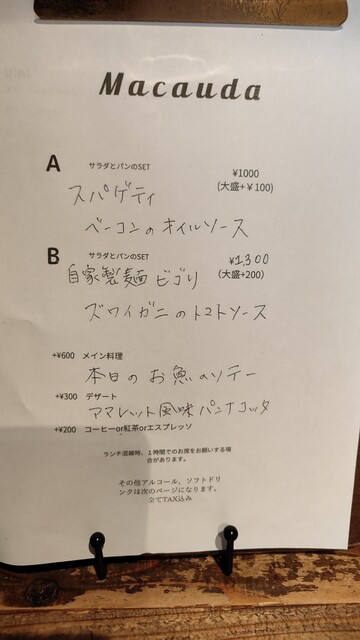 Macauda
A サラダとパンのSET ¥1000
スパゲティ (大盛+¥100)
ベーコンのオイルソース
B サラダとパンのSET ¥1,300
自家製麺 ビゴリ (大盛+200)
ズワイガニのトマトソース
+¥600 メイン料理
本日のお魚のソテー
+¥300 デザート
アマレット風味パンナコッタ
+¥200 コーヒーor紅茶orエスプレッソ
ランチ混雑時、1時間でのお席をお願いする場
合があります。
その他アルコール、ソフトドリ
ンクは次のページになります。
全てTAX込み